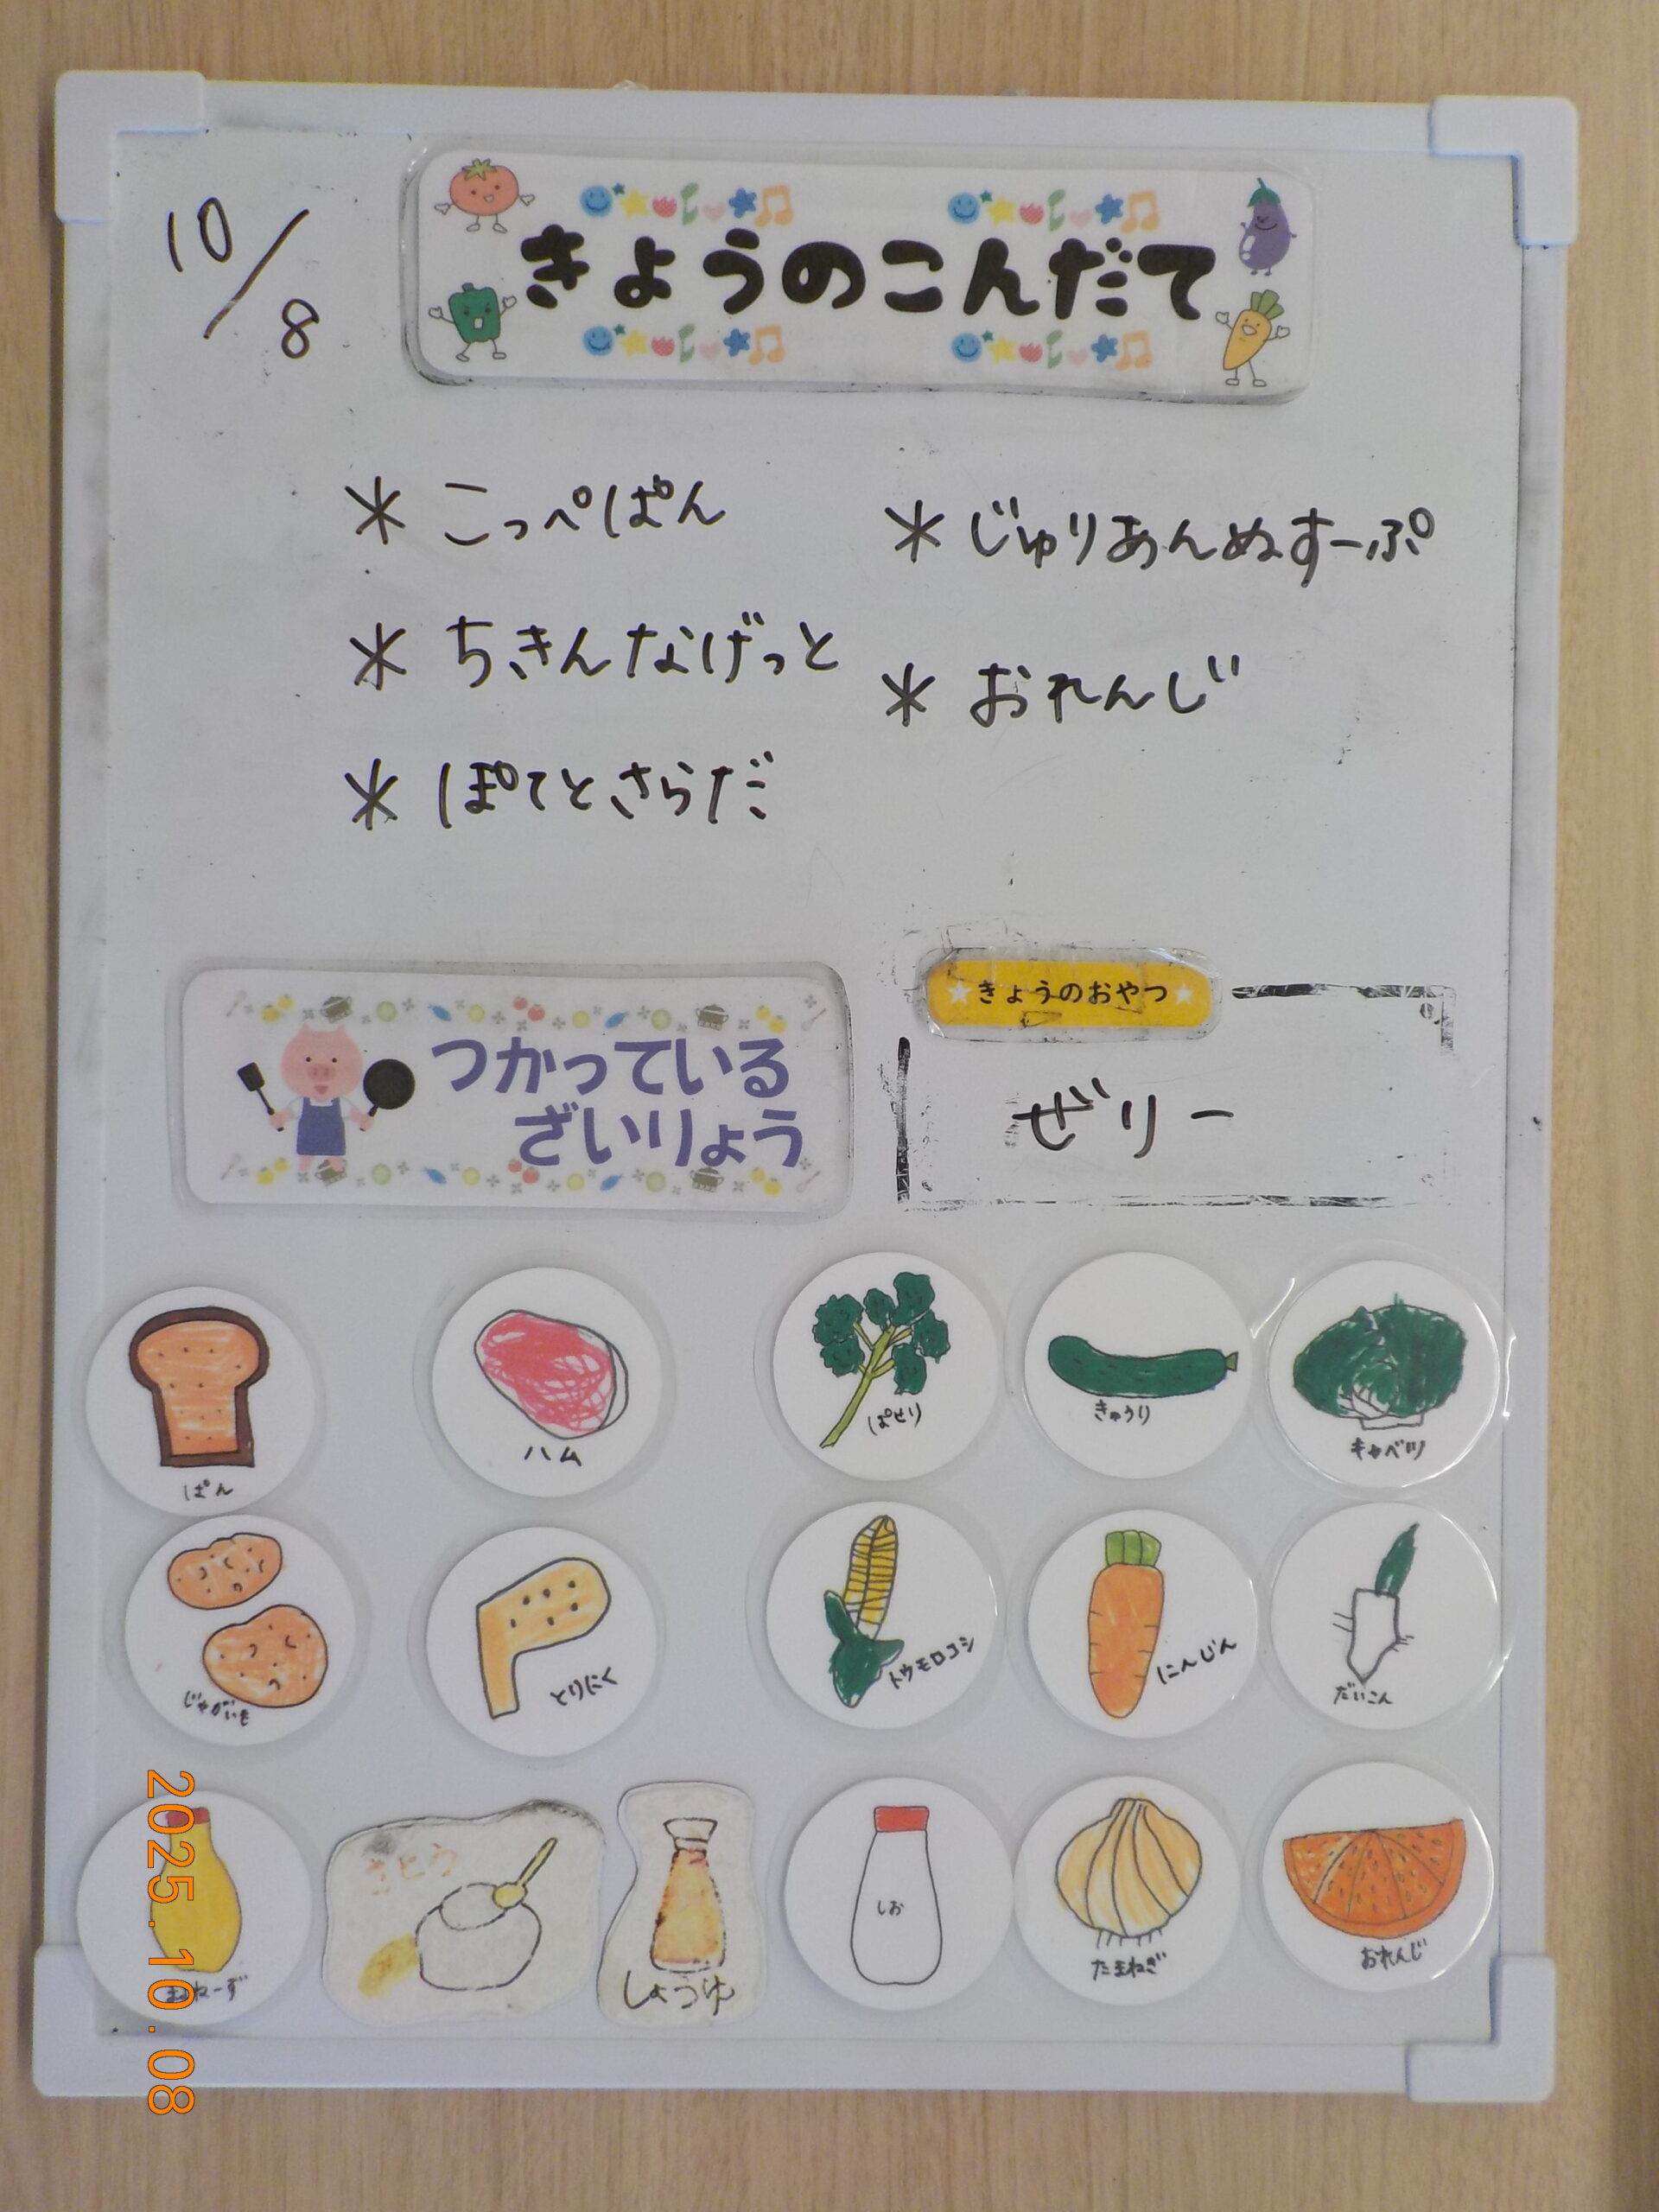 10/8
きょうのこんだて
* こっぺぱん
* ちきんなげっと
* ぽてとさらだ
* じゅりあんぬすーぷ
* おれんじ
つかっている
ざいりょう
★きょうのおやつ★
ぜリー
ぱん
ハム
ぱせり
きゅうり
キャベツ
じゃがいも
とりにく
トウモロコシ
にんじん
だいこん
まよねーず
さとう
しょうゆ
しお
たまねぎ
おれんじ
2025.10.08